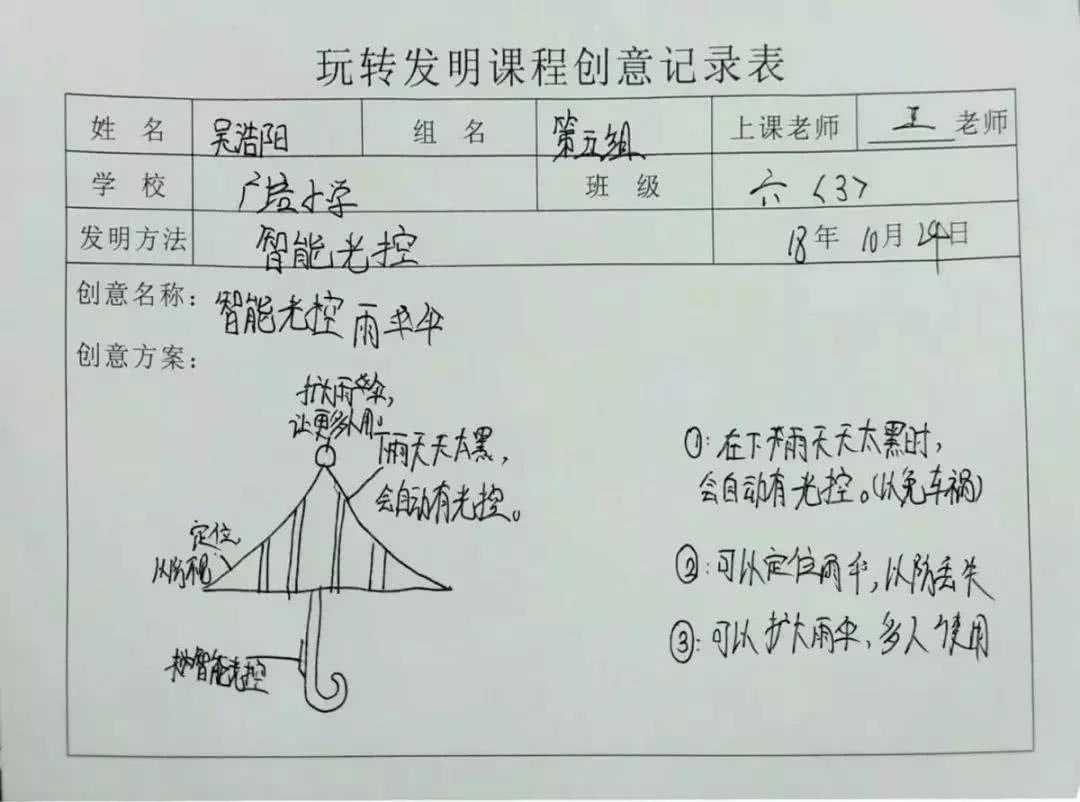 玩转发明课程创意记录表
姓 名 吴浩阳 组 名 第五组 上课老师 王 老师
学 校 广培小学 班 级 六〈3〉
发明方法 智能光控 18年 10月 24日
创意名称: 智能光控雨伞
创意方案:
扩大雨伞,
让更多人用。
下雨天天太黑,
会自动有光控。
定位,
以防
智能光控
①:在下雨天天太黑时,
会自动有光控。(以免车祸)
②:可以定位雨伞,以防丢失
③:可以扩大雨伞,多人使用